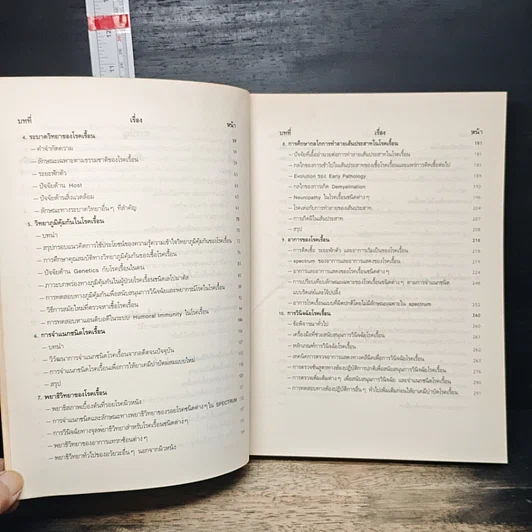 บทที่ เรื่อง หน้า
4. ระบาดวิทยาของโรคเรื้อน
— คำจำกัดความ
— ลักษณะเฉพาะตามธรรมชาติของโรคเรื้อน
— ระยะฟักตัว
— ปัจจัยด้าน Host
— ปัจจัยด้านสิ่งแวดล้อม
— ลักษณะทางระบาดวิทยาอื่นๆ ที่สำคัญ
5. วิทยาภูมิคุ้มกันในโรคเรื้อน
— บทนำ
— สรุปกรอบแนวคิดการใช้ประโยชน์ของความรู้ความเข้าใจวิทยาภูมิคุ้มกันของโรคเรื้อน
— การศึกษาคุณสมบัติทางวิทยาภูมิคุ้มกันของเชื้อโรคเรื้อน
— ปัจจัยด้าน Genetics กับโรคเรื้อนในคน
— ภาวะบกพร่องทางภูมิคุ้มกันในผู้ป่วยโรคเรื้อนชนิดเลโปรมาตัส
— การทดสอบทางภูมิคุ้มกันเพื่อสนับสนุนการวินิจฉัยและพยากรณ์โรคในโรคเรื้อน
— วิธีการสมัยใหม่ที่ตรวจหาเชื้อโรคเรื้อน
— การทดสอบหาแอนติบอดีในระบบ Humoral Immunity ในโรคเรื้อน
6. การจำแนกชนิดโรคเรื้อน
— บทนำ
— วิวัฒนาการการจำแนกชนิดโรคเรื้อนจากอดีตจนปัจจุบัน
— การจำแนกชนิดโรคเรื้อนเพื่อการให้ยาเคมีบำบัดผสมแบบใหม่
— สรุป
7. พยาธิวิทยาของโรคเรื้อน
— พยาธิสภาพเบื้องต้นที่รอยโรคผิวหนัง
— การจำแนกชนิดและลักษณะทางพยาธิวิทยาของรอยโรคชนิดต่างๆ ใน SPECTRUM
— การวินิจฉัยทางจุลพยาธิวิทยาสำหรับโรคเรื้อนชนิดต่างๆ
— พยาธิวิทยาของอาการแทรกซ้อนต่างๆ
— พยาธิวิทยาทั่วไปของอวัยวะอื่นๆ นอกจากผิวหนัง
บทที่ เรื่อง หน้า
8. การศึกษากลไกการทำลายเส้นประสาทในโรคเรื้อน
— ปัจจัยที่เอื้ออำนวยต่อการทำลายเส้นประสาทในโรคเรื้อน
— กลไกของการเข้าไปในเส้นประสาทของเชื้อโรคเรื้อนและแพร่การติดเชื้อต่อไป
— Evolution ของ Early Pathology
— กลไกของการเกิด Demyelination
— Neuropathy ในโรคเรื้อนชนิดต่างๆ
— โรคเห่อกับการทำลายของเส้นประสาท
— การเกิดฝีในเส้นประสาท
— สรุป
9. อาการของโรคเรื้อน
— การติดเชื้อ ระยะฟักตัว และอาการเริ่มเป็นของโรคเรื้อน
— spectrum ของอาการและอาการแสดงของโรคเรื้อน
— อาการและอาการแสดงของโรคเรื้อนชนิดต่างๆ
— การเปรียบเทียบลักษณะอาการของโรคเรื้อนชนิดต่างๆ ตามการจำแนกชนิด
แบบริดเลย์และโจปปลิ้ง
— อาการโรคเรื้อนแบบที่ผิดปกติโดยไม่มีลักษณะเฉพาะใน spectrum
10. การวินิจฉัยโรคเรื้อน 260
— ข้อพิจารณาทั่วไป
— เครื่องมือที่ช่วยสนับสนุนการวินิจฉัยโรคเรื้อน
— หลักเกณฑ์การวินิจฉัยโรคเรื้อน
— เทคนิคการตรวจอาการแสดงทางคลินิคเพื่อการวินิจฉัยโรคเรื้อน
— การตรวจชันสูตรทางห้องปฏิบัติการปกติเพื่อสนับสนุนการวินิจฉัยโรคเรื้อน
— การตรวจเพิ่มเติมต่างๆ เพื่อสนับสนุนการวินิจฉัย และจำแนกชนิดโรคเรื้อน
— การทดสอบทางห้องปฏิบัติการอื่นๆ ทำไปเพิ่มเติมก่อนให้ยาเคมีบำบัดโรคเรื้อน 291